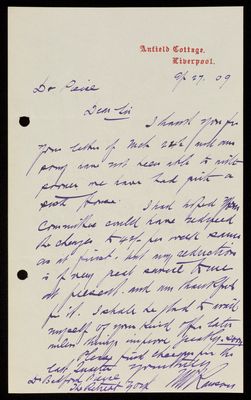 Anfield Cottage,
Liverpool.
9/ 27. 09
Dr Pierce
Dear Sir
I thank you for
your letter of Mch 24th and am
sorry am not been able to write
sooner we have had quite a
sick house. I had hoped
Committee could have reduced
the charges to 4/- per week same
as at first. but any reduction
is of very great service to me
at present. and am thankful
for it. I shall be glad to avail
myself of your kind offer later
when things improve greatly.
Please find cheque for the
last quarter yours truly
Dr Bedford Pierce
The Retreat York